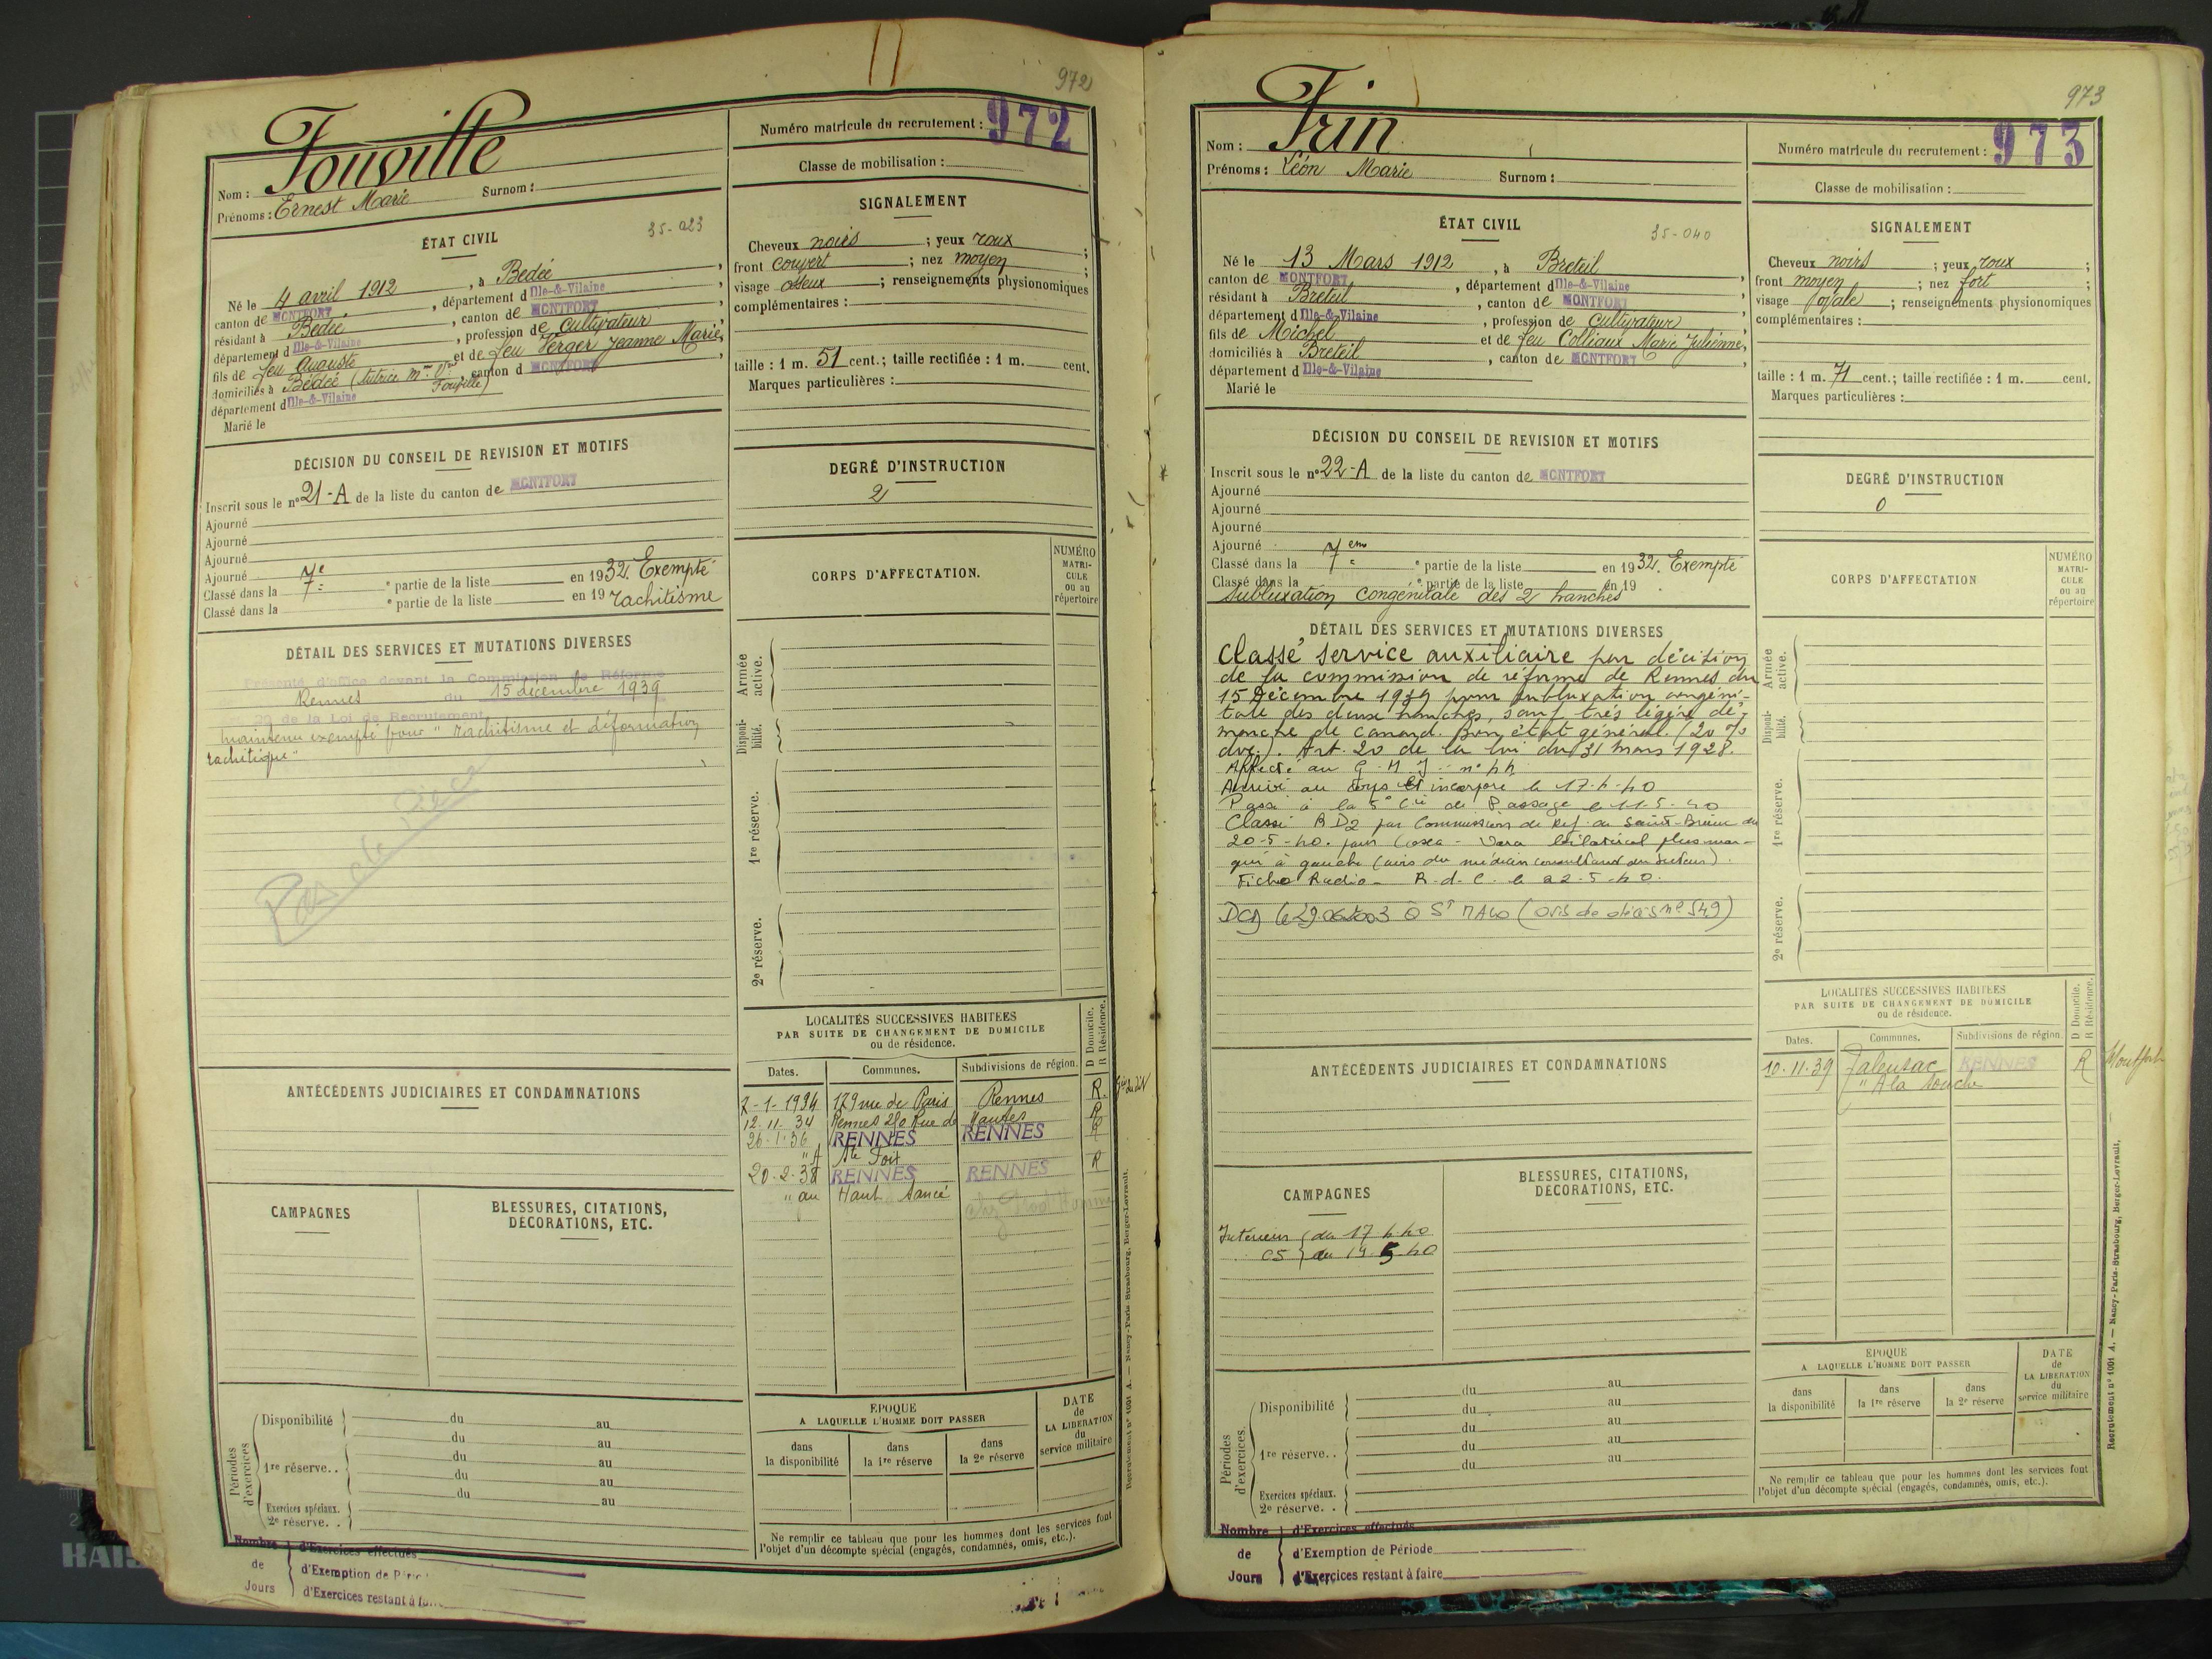 972
Fouville
Nom :
Prénoms : Ernest Marie Surnom :
Numéro matricule du recrutement : 972
Classe de mobilisation :
ÉTAT CIVIL
35-023
Né le 4 avril 1912, à Bédée
canton de MONTFORT, département d Ille-&-Vilaine
résidant à Bédée, canton de MONTFORT
département d Ille-&-Vilaine, profession de cultivateur
fils de feu Auguste et de feu Verger Jeanne Marie,
domiciliés à Bédée (tutrice Mme Vve Fouville), canton d MONTFORT
département d Ille-&-Vilaine
Marié le
SIGNALEMENT
Cheveux noirs ; yeux roux ;
front couvert ; nez moyen ;
visage osseux ; renseignements physionomiques
complémentaires :
taille : 1 m. 51 cent. ; taille rectifiée : 1 m. cent.
Marques particulières :
DÉCISION DU CONSEIL DE REVISION ET MOTIFS
Inscrit sous le n° 21-A de la liste du canton de MONTFORT
Ajourné
Ajourné
Ajourné
Ajourné
Classé dans la 7e e partie de la liste en 1932. Exempté
Classé dans la e partie de la liste en 19 rachitisme
DEGRÉ D'INSTRUCTION
2
CORPS D'AFFECTATION.
NUMÉRO MATRI-CULE ou au répertoire
DÉTAIL DES SERVICES ET MUTATIONS DIVERSES
Présenté d'office devant la Commission de Réforme
Rennes du 15 décembre 1939
20 de la Loi de Recrutement
maintenu exempté pour "rachitisme et déformation
rachitique"
Pas de pièce
Armée active.
Disponi-bilité.
1re réserve.
2e réserve.
LOCALITÉS SUCCESSIVES HABITÉES
PAR SUITE DE CHANGEMENT DE DOMICILE
ou de résidence.
D Domicile.
R Résidence.
Dates. Communes. Subdivisions de région.
2-1-1934 129 rue de Paris Rennes R.
12.11.34 Rennes 210 Rue de Nantes R
26.1.36 RENNES RENNES R
20.2.38 RENNES RENNES R
" au Haut Sancé
ANTÉCÉDENTS JUDICIAIRES ET CONDAMNATIONS
CAMPAGNES
BLESSURES, CITATIONS,
DÉCORATIONS, ETC.
Périodes d'exercices.
Disponibilité du au
du au
1re réserve.. du au
du au
du au
Exercices spéciaux.
2e réserve. .
ÉPOQUE
A LAQUELLE L'HOMME DOIT PASSER
dans la disponibilité
dans la 1re réserve
dans la 2e réserve
DATE de LA LIBÉRATION du service militaire
Ne remplir ce tableau que pour les hommes dont les services font
l'objet d'un décompte spécial (engagés, condamnés, omis, etc.).
Recrutement n° 1001 A. — Nancy-Paris-Strasbourg, Berger-Levrault.
Nombre de Jours
d'Exercices effectués
d'Exemption de Péric
d'Exercices restant à
973
Frin
Nom :
Prénoms : Léon Marie Surnom :
Numéro matricule du recrutement : 973
Classe de mobilisation :
ÉTAT CIVIL
35-040
Né le 13 Mars 1912, à Breteil
canton de MONTFORT, département d Ille-&-Vilaine
résidant à Breteil, canton de MONTFORT
département d Ille-&-Vilaine, profession de cultivateur
fils de Michel et de feu Colliaux Marie Julienne,
domiciliés à Breteil, canton de MONTFORT
département d Ille-&-Vilaine
Marié le
SIGNALEMENT
Cheveux noirs ; yeux roux ;
front moyen ; nez fort ;
visage ovale ; renseignements physionomiques
complémentaires :
taille : 1 m. 71 cent. ; taille rectifiée : 1 m. cent.
Marques particulières :
DÉCISION DU CONSEIL DE REVISION ET MOTIFS
Inscrit sous le n° 22-A de la liste du canton de MONTFORT
Ajourné
Ajourné
Ajourné
Ajourné
Classé dans la 7em e partie de la liste en 1932. Exempté
Classé dans la e partie de la liste en 19
Subluxation congénitale des 2 hanches
DEGRÉ D'INSTRUCTION
0
CORPS D'AFFECTATION
NUMÉRO MATRI-CULE ou au répertoire
DÉTAIL DES SERVICES ET MUTATIONS DIVERSES
Classé service auxiliaire par décision
de la commission de réforme de Rennes du
15 Décembre 1939 pour subluxation congéni-
tale des deux hanches, sauf très légère dé-
marche de canard. Bon état général. (20 %
). Art. 20 de la loi du 31 mars 1928.
Affecté au G.M.J n° 44
Arrivé au corps et incorporé le 17-4-40
Passé à la 5e Cie de Passage le 11-5-40
Classé RD2 par Commission de Réf. de Saint-Brieuc du
20-5-40. pour Coxa-Vara bilatéral plus mar-
qué à gauche (avis du médecin consultant du secteur).
Fiche Radio- R.d.C. le 22-5-40.
DCD le 29.06.2003 à St MALO (avis de décès n° 549)
Armée active.
Disponi-bilité.
1re réserve.
2e réserve.
LOCALITÉS SUCCESSIVES HABITÉES
PAR SUITE DE CHANGEMENT DE DOMICILE
ou de résidence.
D Domicile.
R Résidence.
Dates. Communes. Subdivisions de région.
10.11.39 Talensac RENNES R Montfort
" A la Touche
ANTÉCÉDENTS JUDICIAIRES ET CONDAMNATIONS
CAMPAGNES
Intérieur du 17.4.40
CS au 19.5.40
BLESSURES, CITATIONS,
DÉCORATIONS, ETC.
Périodes d'exercices.
Disponibilité du au
du au
1re réserve.. du au
du au
du au
Exercices spéciaux.
2e réserve. .
ÉPOQUE
A LAQUELLE L'HOMME DOIT PASSER
dans la disponibilité
dans la 1re réserve
dans la 2e réserve
DATE de LA LIBÉRATION du service militaire
Ne remplir ce tableau que pour les hommes dont les services font
l'objet d'un décompte spécial (engagés, condamnés, omis, etc.).
Recrutement n° 1001 A. — Nancy-Paris-Strasbourg, Berger-Levrault.
Nombre de Jours
d'Exercices effectués
d'Exemption de Période
d'Exercices restant à faire